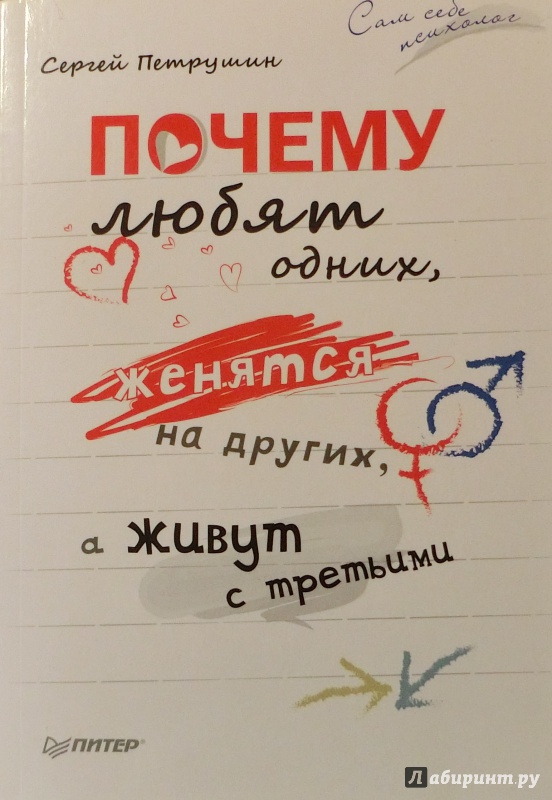 Сам себе
психолог
Сергей Петрушин
ПОЧЕМУ
любят
одних,
женятся
на других,
а живут
с третьими
ПИТЕР®
Лабиринт.ру